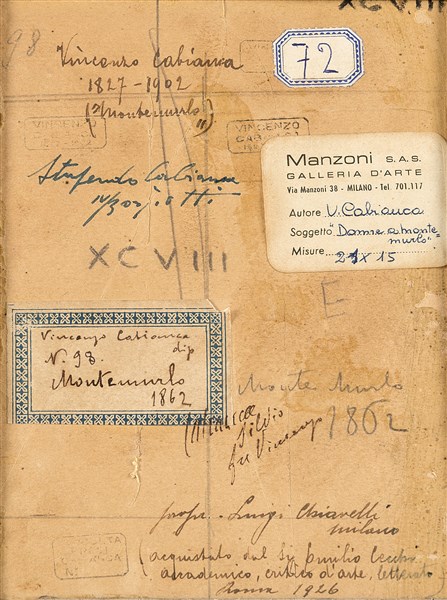 XCVIII
98
72
Vincenzo Cabianca
1827-1902
("Montemurlo")
VINCENZO
VINCENZO
CABIANCA
Manzoni S.A.S.
GALLERIA D'ARTE
Via Manzoni 38 - MILANO - Tel. 701.117
Autore V. Cabianca
Soggetto "Donne a monte
murlo"
Misure 21 x 15
Stupendo Cabianca
XCVIII
E
Vincenzo Cabianca
dip
N. 98.
Montemurlo
1862
Monte Murlo
1862
Silvio
fu Vincenzo
profr. Luigi Chiarelli
milano
(acquistato dal Sig Emilio Cecchi
accademico, critico d'arte, letterato
Roma 1926